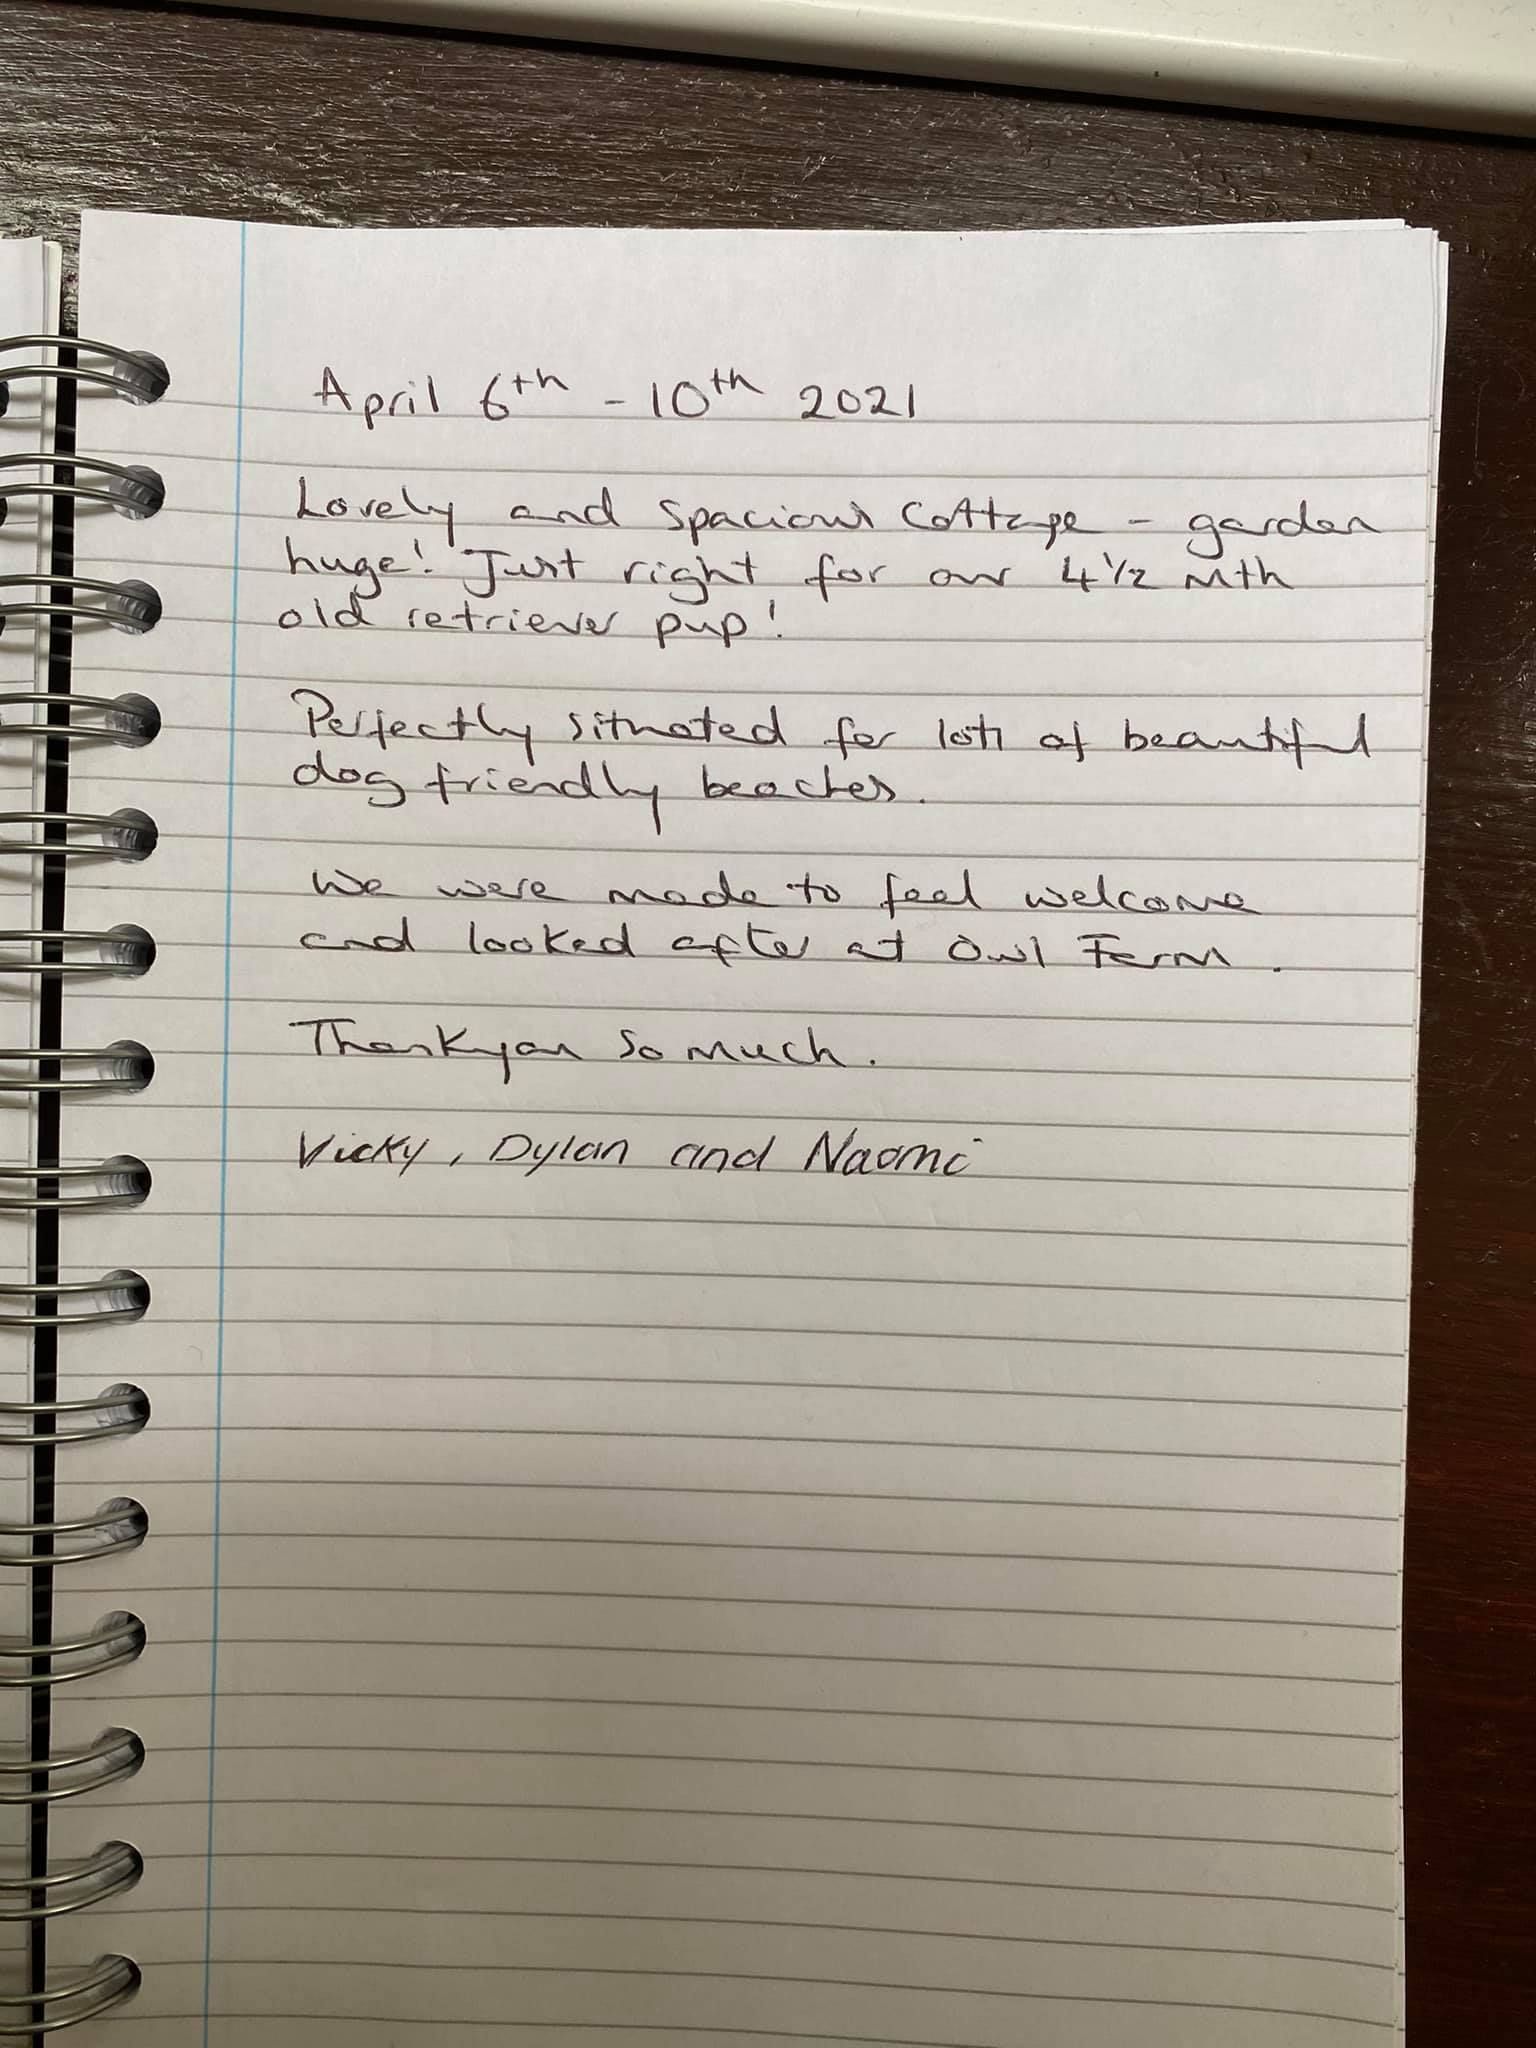 April 6th - 10th 2021
Lovely and spacious cottage - garden
huge! Just right for our 4 1/2 mth
old retriever pup!
Perfectly situated for lots of beautiful
dog friendly beaches.
We were made to feel welcome
and looked after at Owl Farm.
Thankyou so much.
Vicky, Dylan and Naomi